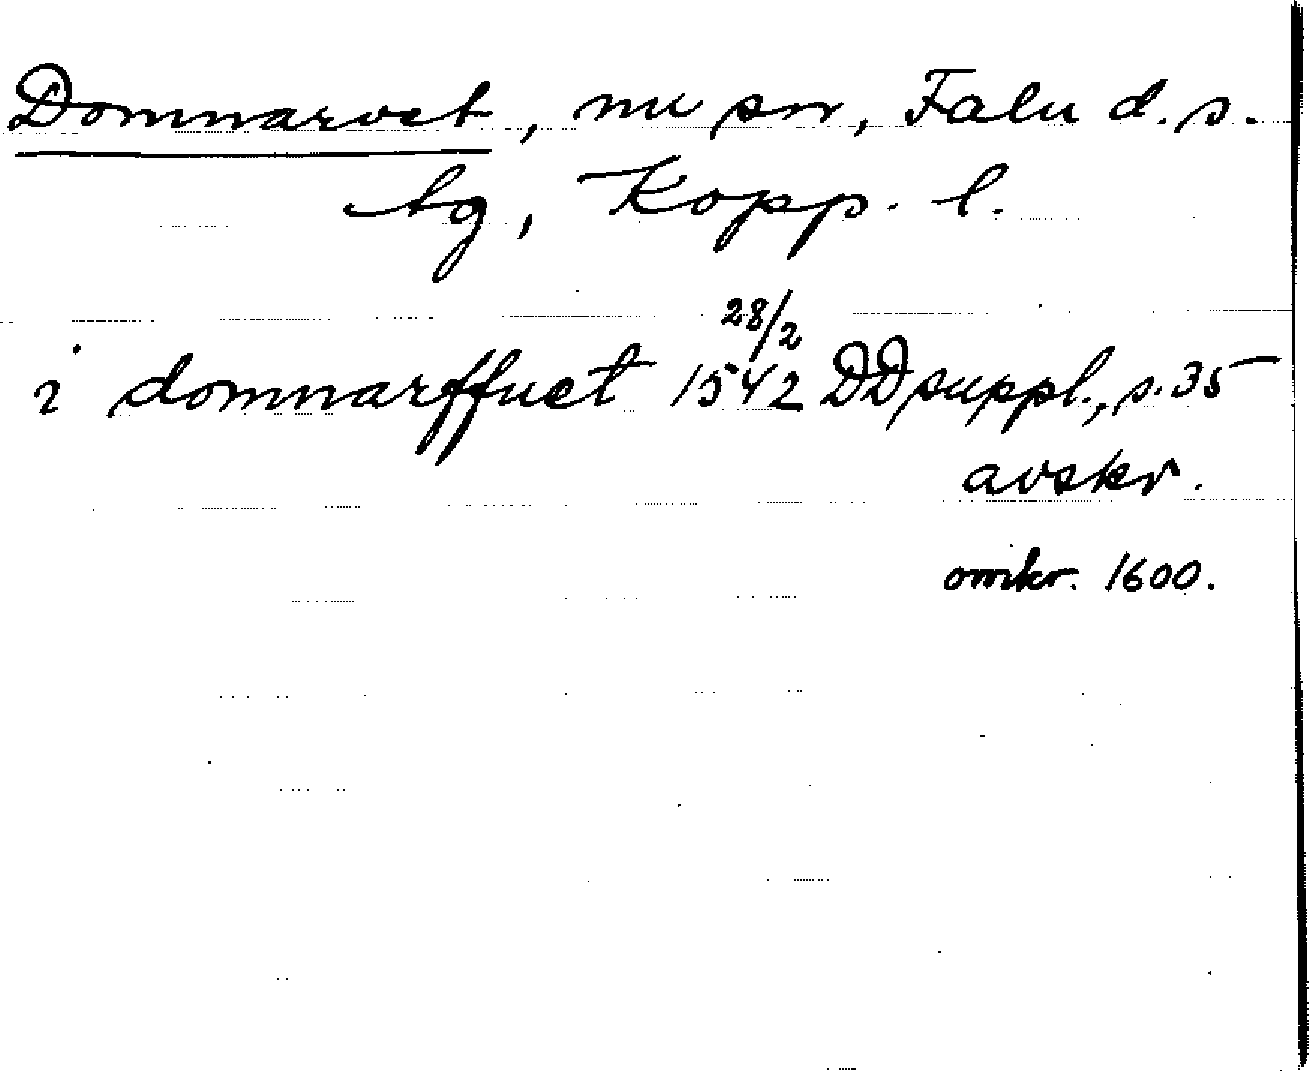 Domnarvet, nu sn, Falu d.s.
tg, Kopp. l.
28/2
i domnarffuet 1542 DDsuppl., s. 35
avskr.
omkr. 1600.